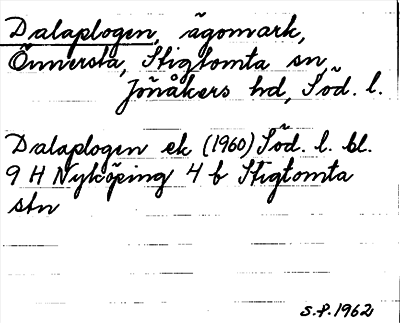 Dalaplogen, ägomark,
Önnersta, Stigtomta sn,
Jönåkers hd, Söd. l.
Dalaplogen ek (1960) Söd. l. bl.
9 H Nyköping 4 b Stigtomta
stn
S.P. 1962